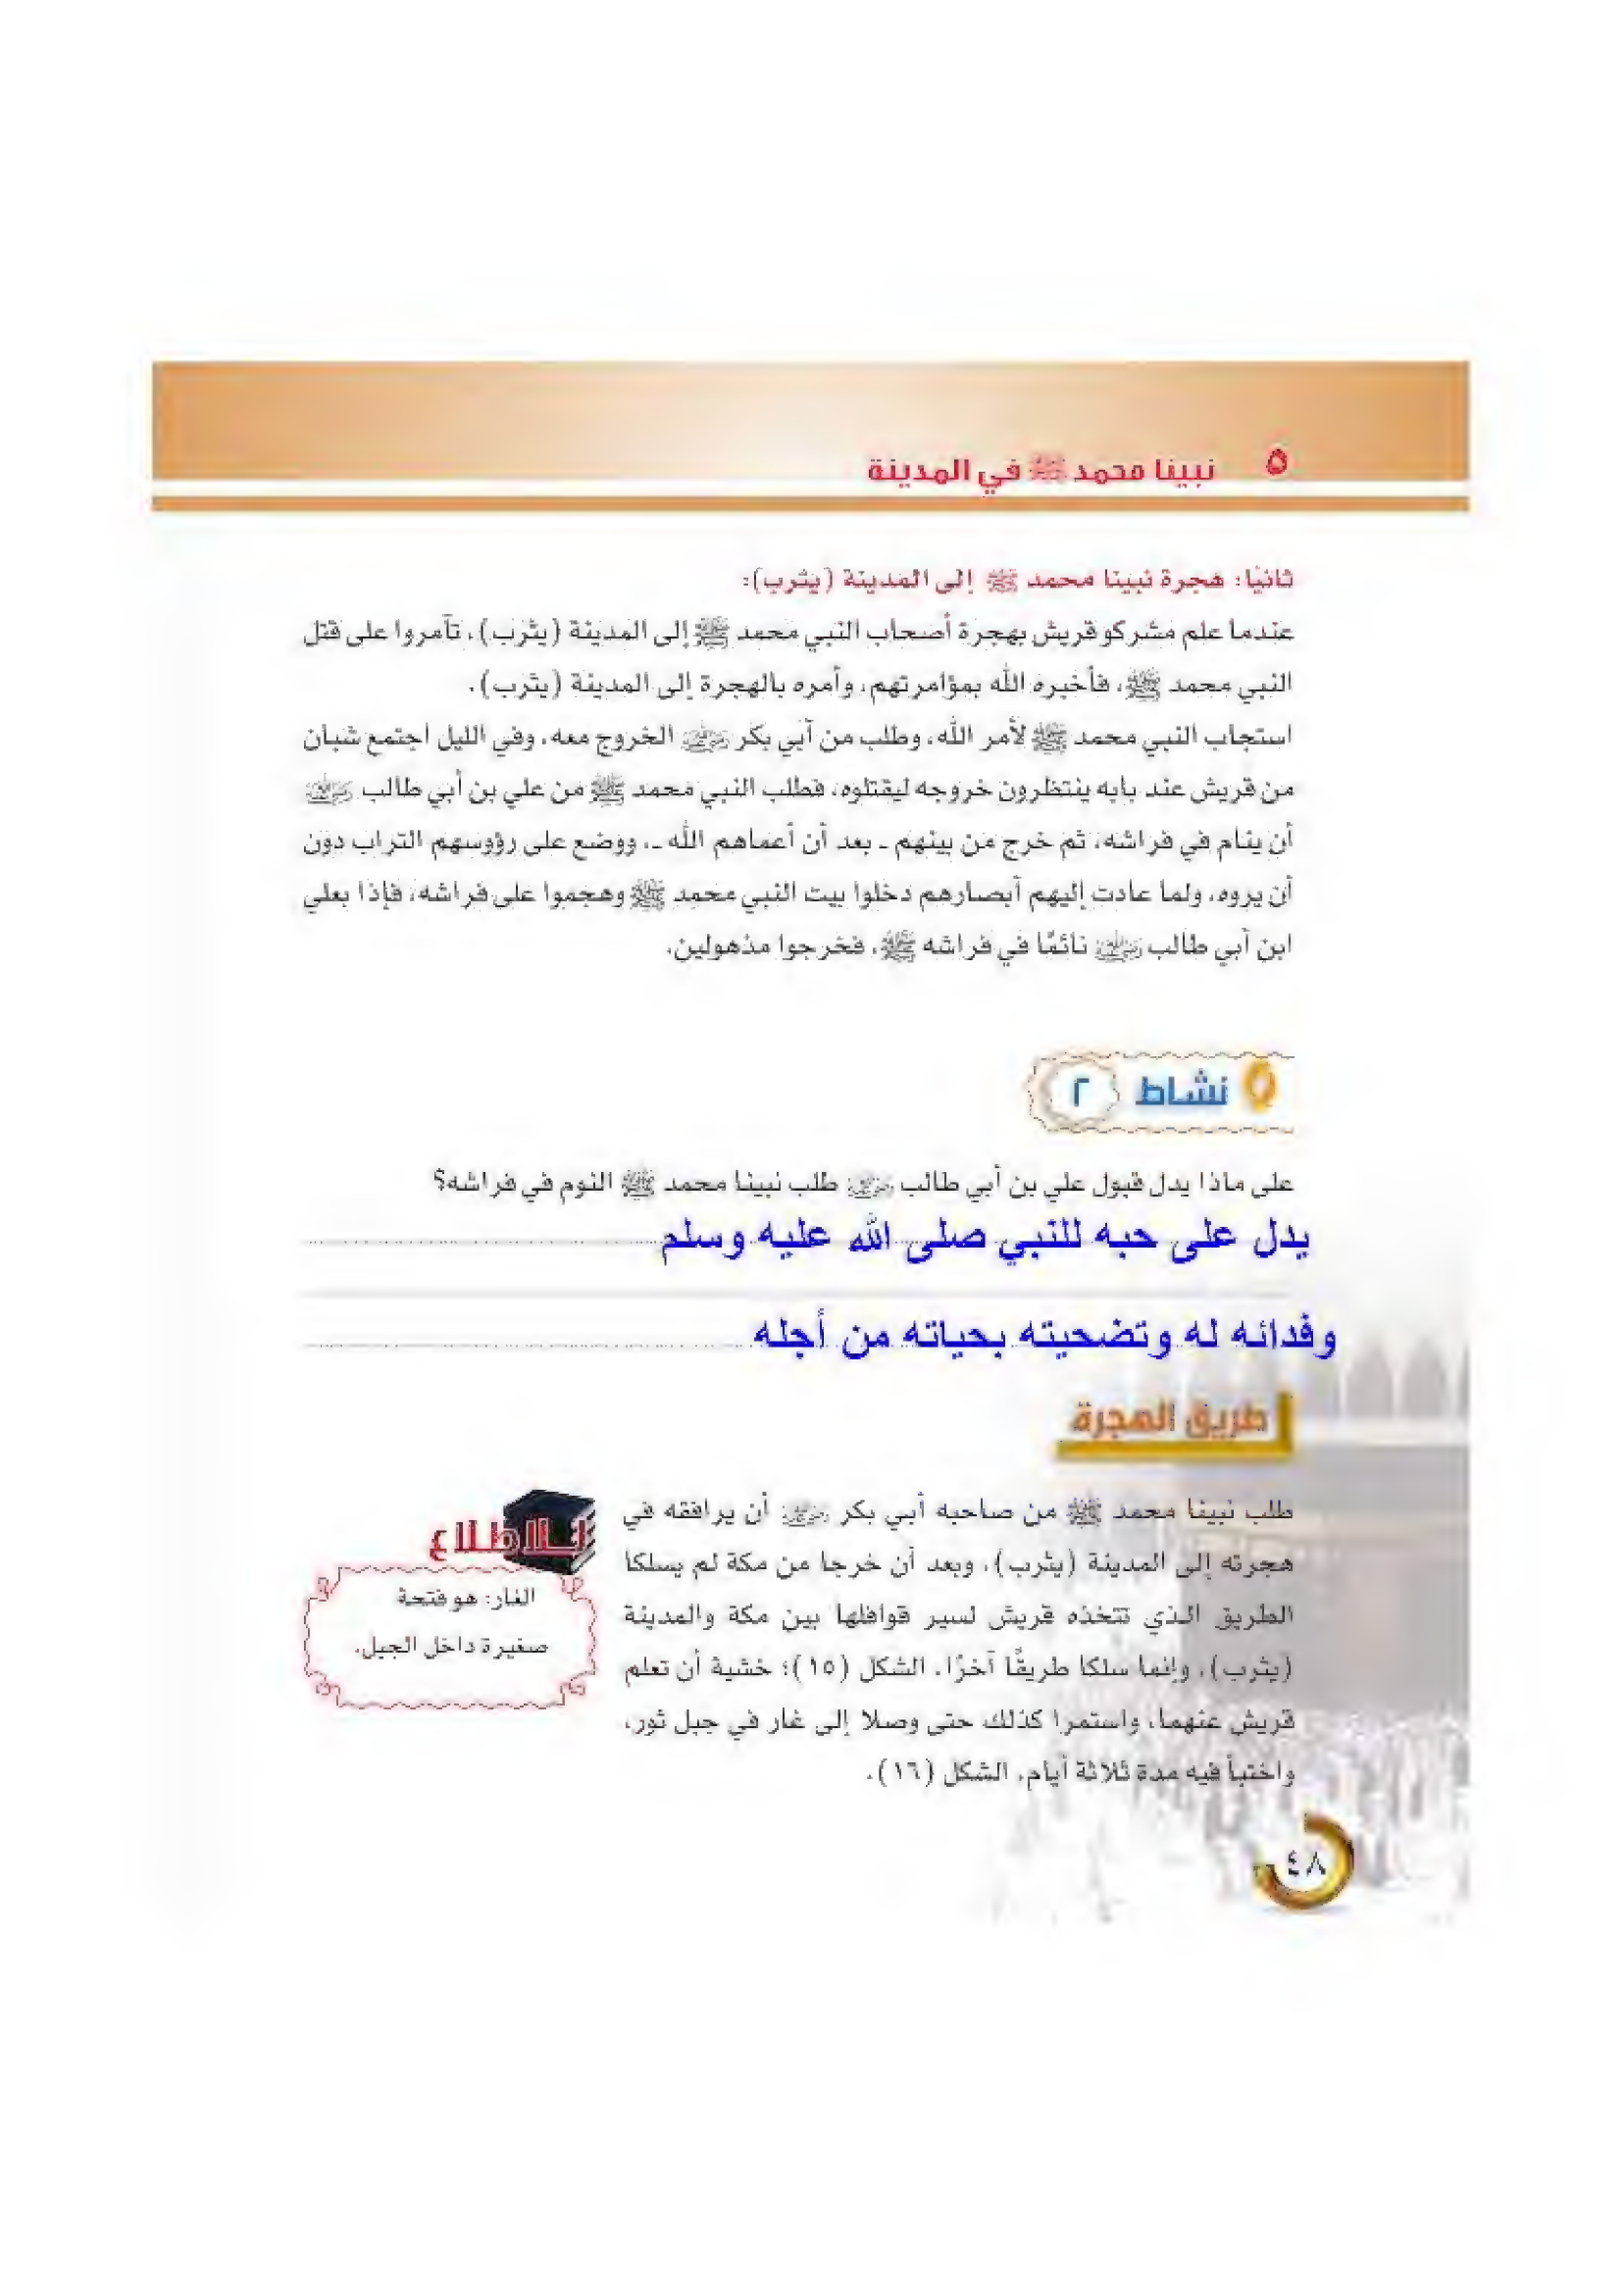 ٥ نبينا محمد ﷺ في المدينة
ثانيًا: هجرة نبينا محمد ﷺ إلى المدينة (يثرب):
عندما علم مشركو قريش بهجرة أصحاب النبي محمد ﷺ إلى المدينة (يثرب)، تآمروا على قتل
النبي محمد ﷺ، فأخبره الله بمؤامرتهم، وأمره بالهجرة إلى المدينة (يثرب).
استجاب النبي محمد ﷺ لأمر الله، وطلب من أبي بكر رضي الله عنه الخروج معه، وفي الليل اجتمع شبان
من قريش عند بابه ينتظرون خروجه ليقتلوه، فطلب النبي محمد ﷺ من علي بن أبي طالب رضي الله عنه
أن ينام في فراشه، ثم خرج من بينهم - بعد أن أعماهم الله -، ووضع على رؤوسهم التراب دون
أن يروه، ولما عادت إليهم أبصارهم دخلوا بيت النبي محمد ﷺ وهجموا على فراشه، فإذا بعلي
ابن أبي طالب رضي الله عنه نائمًا في فراشه ﷺ، فخرجوا مذهولين.
نشاط ٢
على ماذا يدل قبول علي بن أبي طالب رضي الله عنه طلب نبينا محمد ﷺ النوم في فراشه؟
يدل على حبه للنبي صلى الله عليه وسلم
وفدائه له وتضحيته بحياته من أجله
طريق الهجرة
طلب نبينا محمد ﷺ من صاحبه أبي بكر رضي الله عنه أن يرافقه في
هجرته إلى المدينة (يثرب)، وبعد أن خرجا من مكة لم يسلكا
الطريق الذي تتخذه قريش لسير قوافلها بين مكة والمدينة
(يثرب)، وإنما سلكا طريقًا آخرًا، الشكل (١٥)؛ خشية أن تعلم
قريش عنهما، واستمرا كذلك حتى وصلا إلى غار في جبل ثور،
واختبأ فيه مدة ثلاثة أيام، الشكل (١٦).
لـلاطلاع
الغار: هو فتحة
صغيرة داخل الجبل.
٤٨